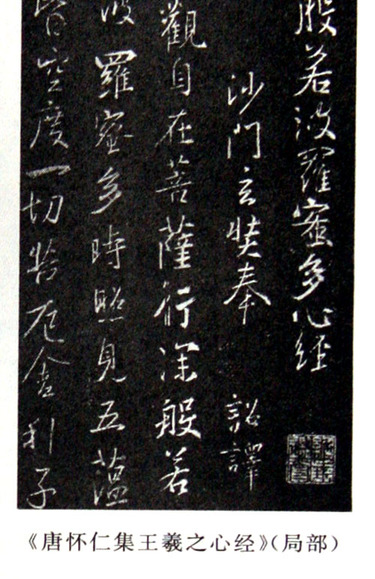 般若波羅蜜多心經
沙門玄奘奉　詔譯
觀自在菩薩行深般若
波羅蜜多時照見五蘊
皆空度一切苦厄舍利子
《唐怀仁集王羲之心经》(局部)